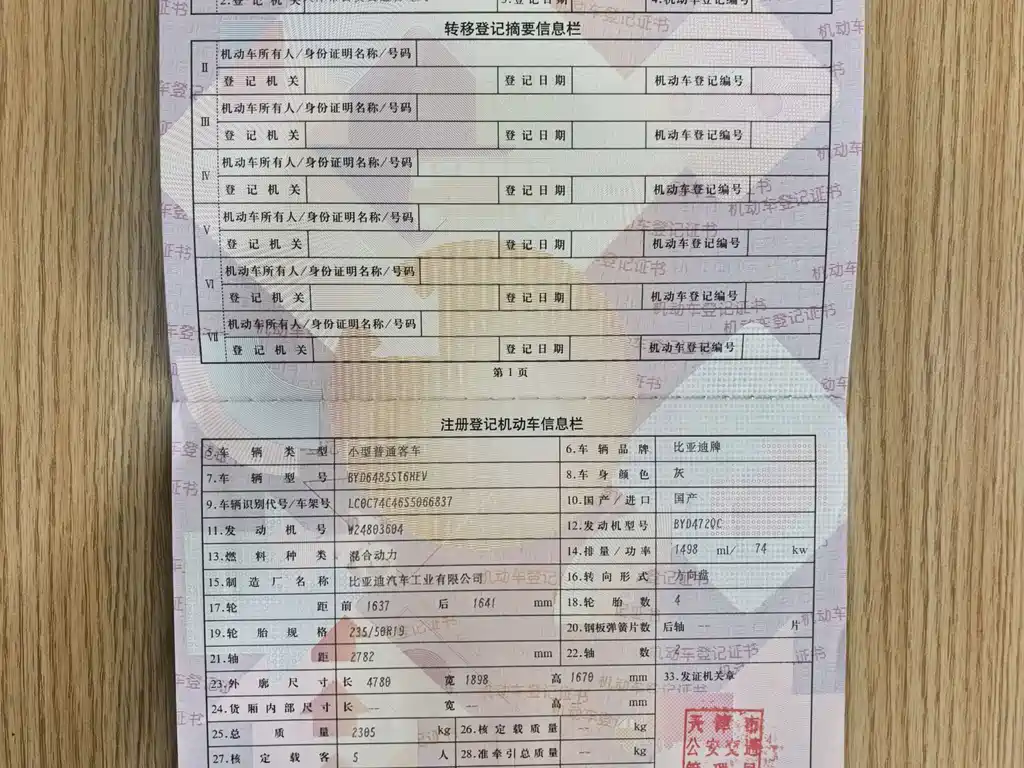 2.登记机关
3.登记日期
4.机动车登记编号
转移登记摘要信息栏
Ⅱ 机动车所有人/身份证明名称/号码
登记机关 登记日期 机动车登记编号
Ⅲ 机动车所有人/身份证明名称/号码
登记机关 登记日期 机动车登记编号
Ⅳ 机动车所有人/身份证明名称/号码
登记机关 登记日期 机动车登记编号
Ⅴ 机动车所有人/身份证明名称/号码
登记机关 登记日期 机动车登记编号
Ⅵ 机动车所有人/身份证明名称/号码
登记机关 登记日期 机动车登记编号
Ⅶ 机动车所有人/身份证明名称/号码
登记机关 登记日期 机动车登记编号
第1页
注册登记机动车信息栏
5.车辆类型 小型普通客车 6.车辆品牌 比亚迪牌
7.车辆型号 BYD6485ST6HEV 8.车身颜色 灰
9.车辆识别代号/车架号 LC0C74C46S5066837 10.国产/进口 国产
11.发动机号 W24803604 12.发动机型号 BYD472QC
13.燃料种类 混合动力 14.排量/功率 1498 ml/ 74 kw
15.制造厂名称 比亚迪汽车工业有限公司 16.转向形式 方向盘
17.轮距 前 1637 后 1641 mm 18.轮胎数 4
19.轮胎规格 235/50R19 20.钢板弹簧片数 后轴 -- 片
21.轴距 2782 mm 22.轴数 2
23.外廓尺寸 长 4780 宽 1898 高 1670 mm 33.发证机关章
24.货厢内部尺寸 长 -- 宽 -- 高 mm
25.总质量 2305 kg 26.核定载质量 -- kg
27.核定载客 5 人 28.准牵引总质量 -- kg
天津市
公安交通
管理局